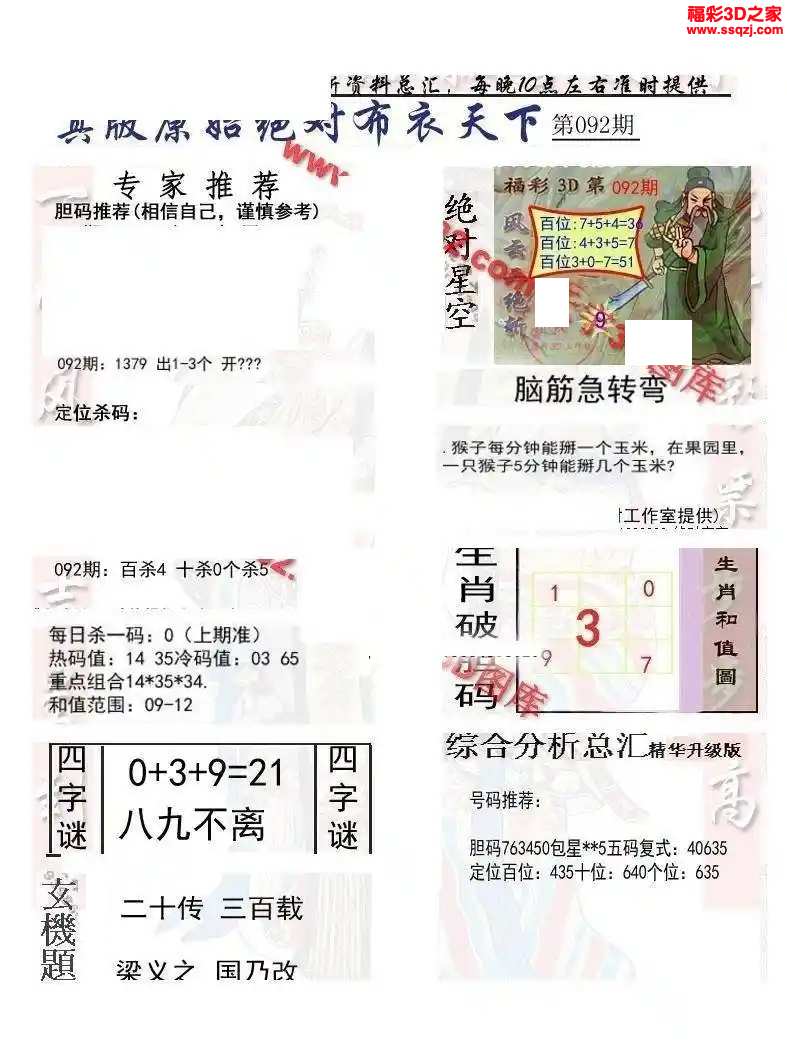 福彩3D之家
www.ssqzj.com
资料总汇，每晚10点左右准时提供
真版原始绝对布衣天下 第092期
专家推荐
胆码推荐(相信自己，谨慎参考)
092期：1379 出1-3个 开???
定位杀码：
092期：百杀4 十杀0个杀5
每日杀一码：0（上期准）
热码值：14 35冷码值：03 65
重点组合14*35*34.
和值范围：09-12
四字谜
0+3+9=21
八九不离
四字谜
玄機題
二十传 三百载
梁义之 国乃改
绝对星空
福彩 3D 第 092期
百位:7+5+4=36
百位:4+3+5=7
百位3+0-7=51
风云 绝斩
9 3
脑筋急转弯
.猴子每分钟能掰一个玉米，在果园里，
一只猴子5分钟能掰几个玉米?
工作室提供)
生肖破胆码
1 0
3
9 7
生肖和值圖
综合分析总汇精华升级版
号码推荐：
胆码763450包星**5五码复式：40635
定位百位：435十位：640个位：635